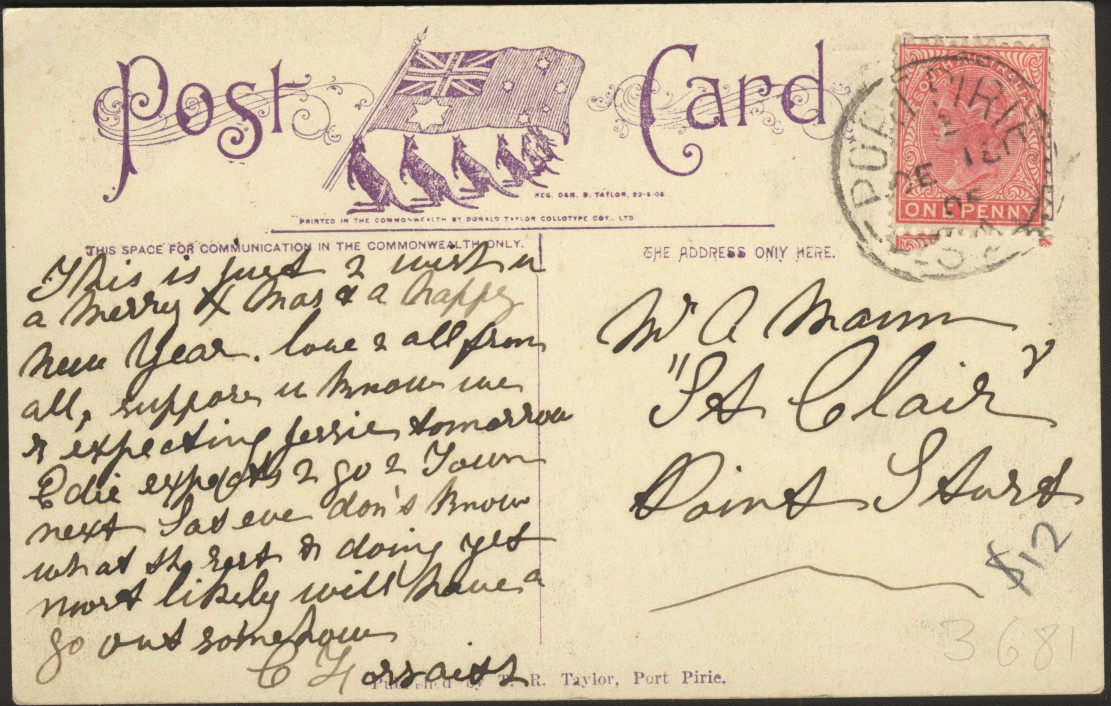 Post Card
REG. DSN. D. TAYLOR, 22-5-05
PRINTED IN THE COMMONWEALTH BY DONALD TAYLOR COLLOTYPE COY., LTD
ONE PENNY
PORT PIRIE
DE 18
05
THIS SPACE FOR COMMUNICATION IN THE COMMONWEALTH ONLY.
THE ADDRESS ONLY HERE.
This is just 2 wish u
a Merry X Mas & a happy
New Year. love 2 all from
all, suppose u know we
r expecting Jessie tomorrow
Edie expects 2 go 2 Town
next Sat eve don't know
what the rest r doing yet
most likely will have a
go out somehow
Mr A Mann
"St Clair"
Point Sturt
$12
3681
Published by T. R. Taylor, Port Pirie.